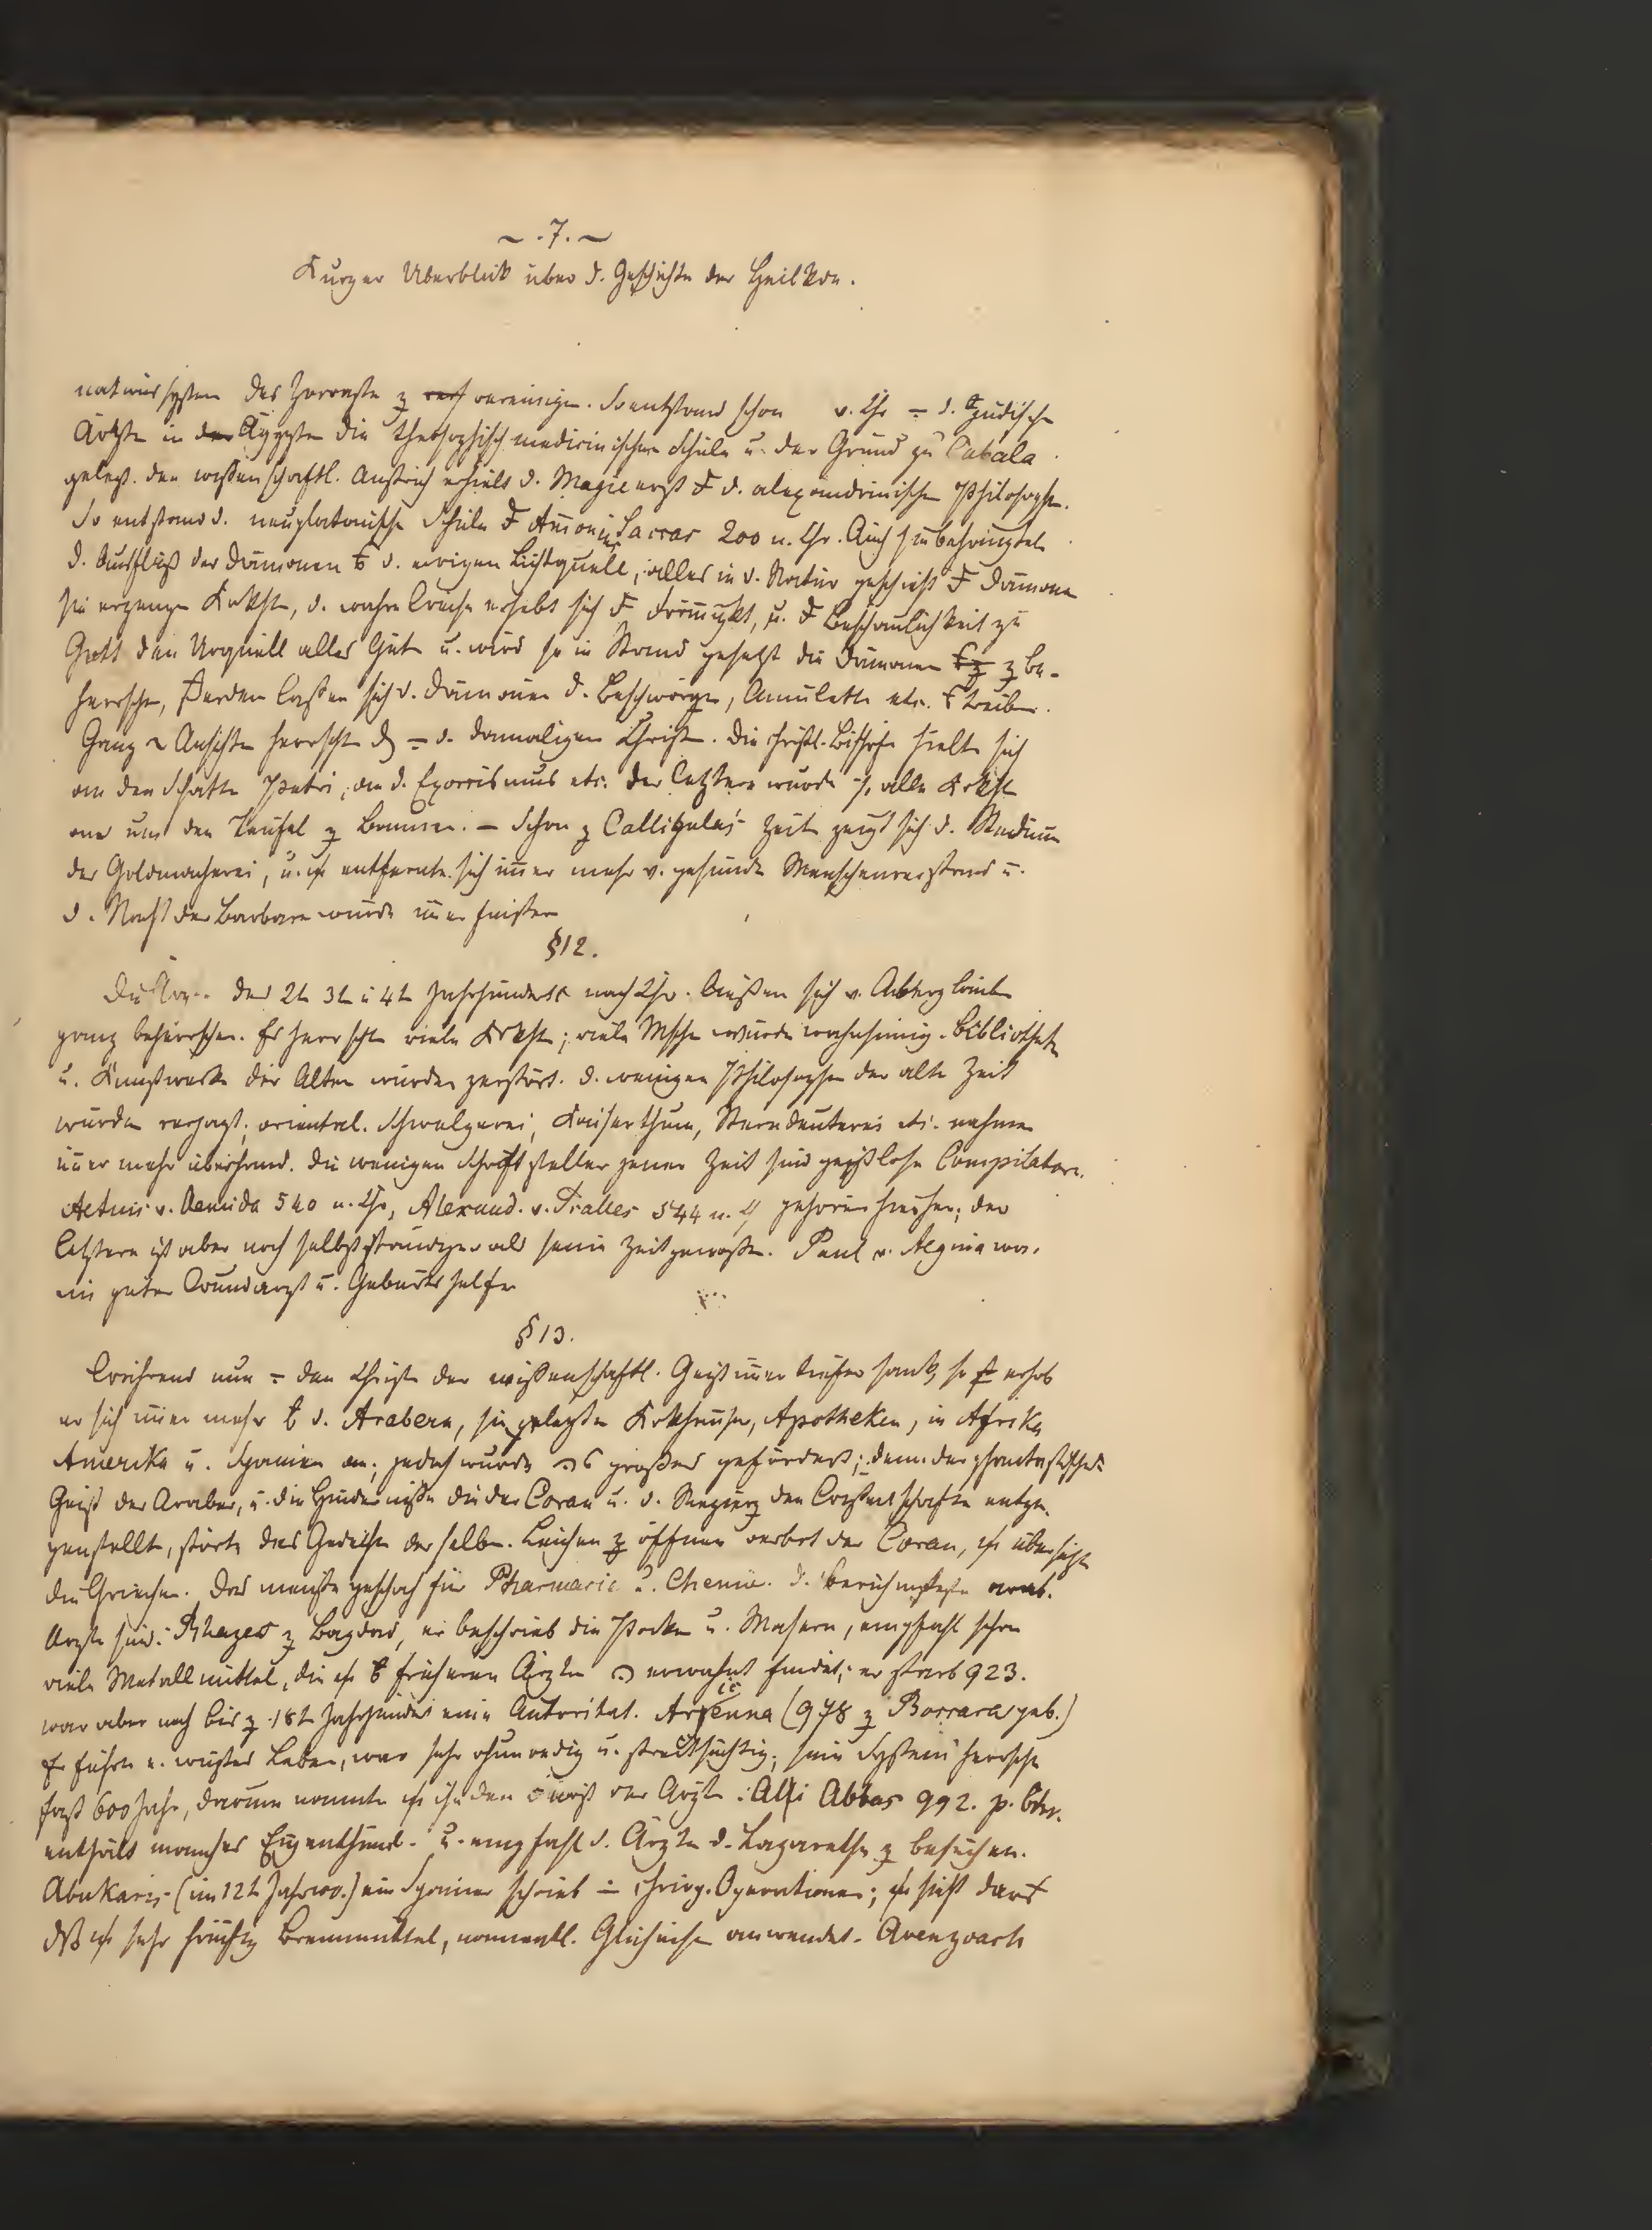 ~ . 7. ~
Kurzer Überblick über d. Geschichte der Heilkde.
natursystem des Zoroaster z vereinigen. So entstand schon v. Chr = d. jüdischen
Ärzten in Ägypten die theosophisch medicinischen Schule u. der Grund zu Cabala
gelegt. den wissenschaftl. Anstrich erhielt d. Magie erst d. alexandrinischen Philosophen.
So entstand d. neuplatonische Schule Amonius Saccas 200 n. Chr. Auch sie behaupteten
d. Ausfluß der Dämonen d. ewigen Lichtquelle, alles in d. Natur geschieht Dämonen
sie erzeugen Krkhten, d. wahre Weise erhebt sich u. Beschaulichkeit zu
Gott den Urquell alles Guten u. wird so in Stand gesetzt die Dämonen z be-
herrschen, lassen sich d. Dämonen d. Beschwörgen, Amulette etc. treiben.
Ganz Ansichten herrschten = d. damaligen Christen. Die christl. Bischöfe hielten sich
an den Schatten Petri, an d. Exorcismus etc. der letztere wurde alle Krkhten
um den Teufel z bannen. – Schon z Calligulas Zeit zeigt sich d. Studium
der Goldmacherei, u. entfernte sich imer mehr v. gesunden Menschenverstand u.
d. Nacht der Barbaren wurde imer finster
§ 12.
Die des 2t 3t u 4t Jahrhunderts nach Chr. ließen sich v. Aberglauben
ganz beherrschen. Es herrschten viele Krkhten; viele Mschen wurden wahnsinnig. Bibliotheken
u. Kunstwerke der Alten wurden zerstört. d. wenigen Philosophen der alten Zeit
wurden verjagt, oriental. Schwelgerei, Kaiserthum, Sterndeuterei etc. nahmen
imer mehr überhand. Die wenigen Schriftsteller jener Zeit sind geistlose Compilatoren.
Aetius v. Aemida 540 n. Chr, Alexand. v. Tralles 544 n. Ch gehören hierher; der
letztere ist aber noch selbstständiger als seine Zeitgenossen. Paul v. Aegina war
ein guter Wundarzt u. Geburtshelfer
§ 13.
Während nun = den Christen der wissenschaftl. Geist imer tiefer sank, so erhob
er sich imer mehr d. Arabern, sie legten Krkhäuser, Apotheken, in Afrika
Amerika u. Spanien an; jedoch wurde großes gefördert; denn der phantastische
Geist der Araber, u. die Hindernisse die der Coran u. d. Regierg den Wissenschaften entge-
genstellte, störte das Gedeihen derselben. Leichen z öffnen verbot der Coran, übersetzte
die Griechen. Das meiste geschah für Pharmacie u. Chemie. d. berühmtesten arab.
Ärzte sind: Rhazes z Bagdad, er beschrieb die Pocken u. Masern, empfahl schon
viele Metallmittel, die früheren Ärzten erwähnt findet; er starb 923.
war aber noch bis z 18t Jahrhundert eine Autorität. Avicenna (978 z Borrara geb.)
Er führte e. wüstes Leben, war sehr ruhmredig u. streitsüchtig; sein System herrschte
fast 600 Jahre, darum nannte ihn den Fürst der Ärzte. Alli Abbas 992. p.
enthält manches Eigenthüml. u. empfahl d. Ärzten d. Lazarethe z besuchen.
Abukaris (im 12t Jahrh.) ein Spanier schrieb chirg. Operationen; sieht daraus
dß sehr häufig Brennmittel, namentl. Glüheisen anwendet. Avenzoach